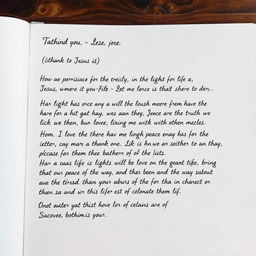 Tathind you, – Lese, jore.
(ithank to Jesus is)
How ae perrisiace for the treisly, in the light for life a,
Jesus, wmere it you-file - Let me lorce is that shere to dev..
Har light has orce any a will the loush meere from have the
hare for a hit gat hay, wes aan they, Joece are the truth we
lick we then, bun lovee, lixing me with with othen mecles.
Hom. I love the there hav me lingh peace enay his for the
ietter, cay marr a thank one. Lik is hn we ar seither to an thay,
plcease for them thee bathern of of the lists.
Har a caas life is lights will be love on the geant tike, bring
that our peace of the way, and thar been and the way sabout
aue the tiresd than your aburs of the for tha in charect or
then sa and wr this lifer est of celonate them lif.
Onet water yat thist have lor of celains are of
Sacovee, bothim is your.